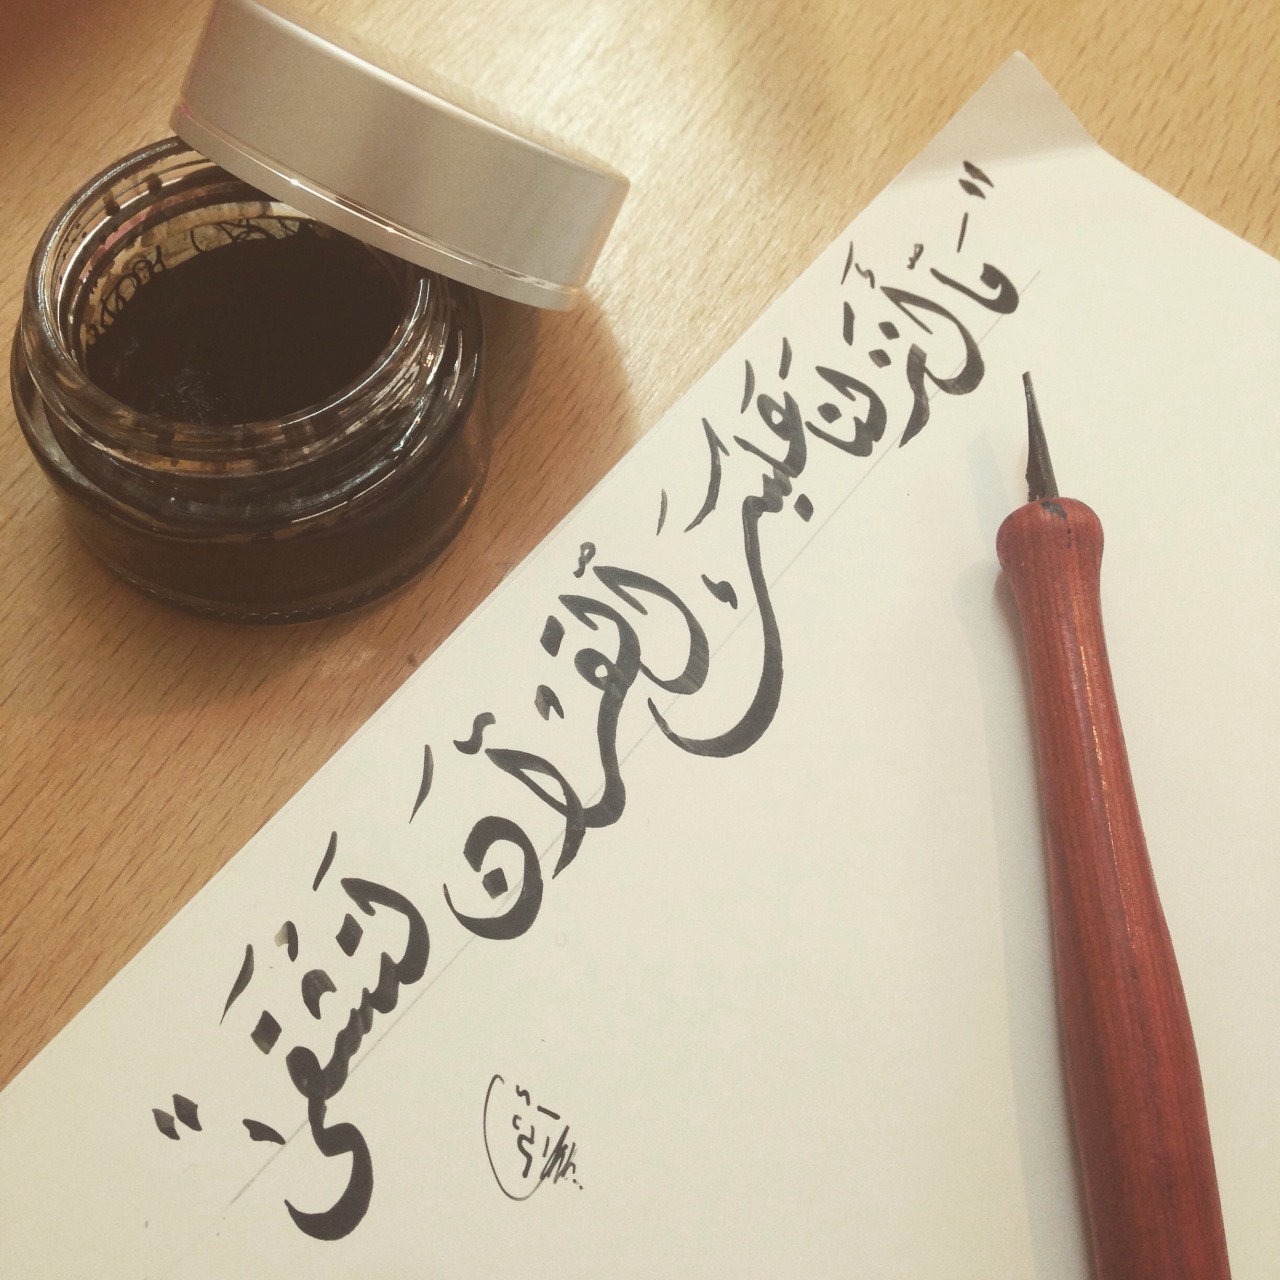 "مَا أَنزَلْنَا عَلَيْكَ الْقُرْآنَ لِتَشْقَىٰ"